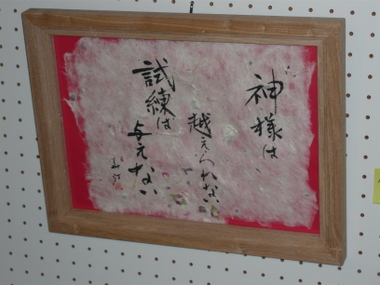 神様は
越えられない
試練は
与えない